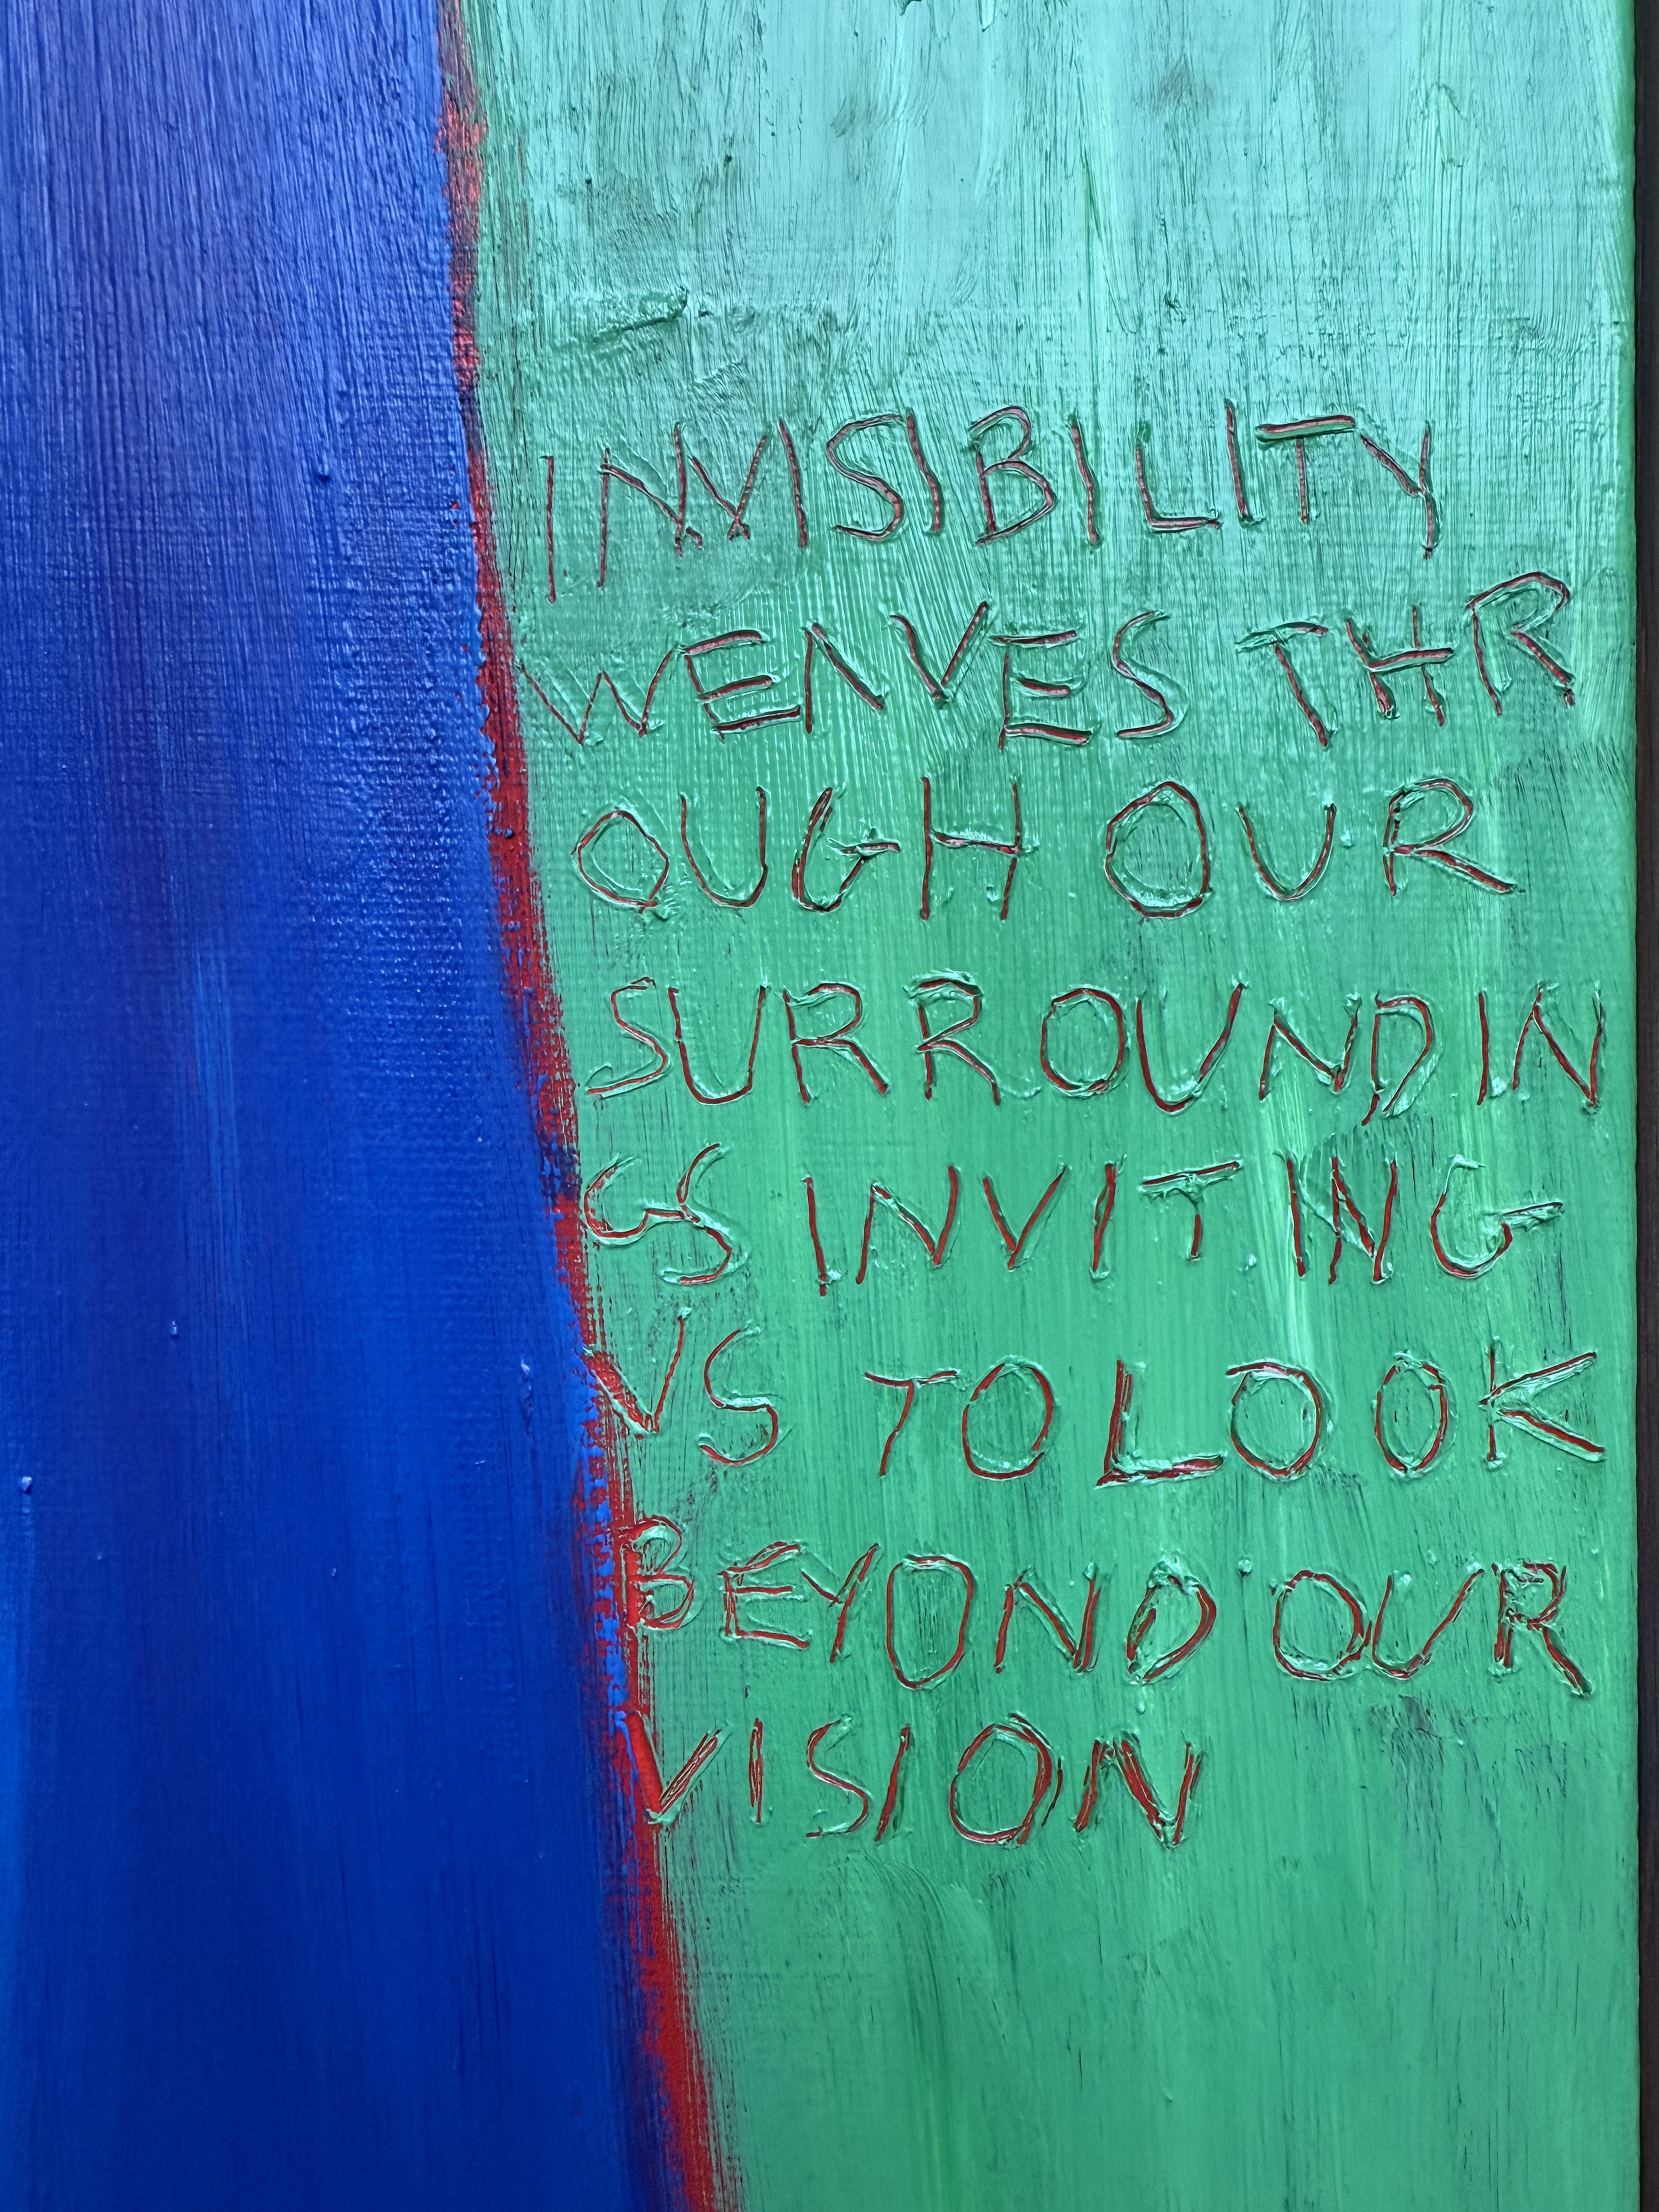 INVISIBILITY
WEAVES THR
OUGH OUR
SURROUNDIN
GS INVITING
US TO LOOK
BEYOND OUR
VISION